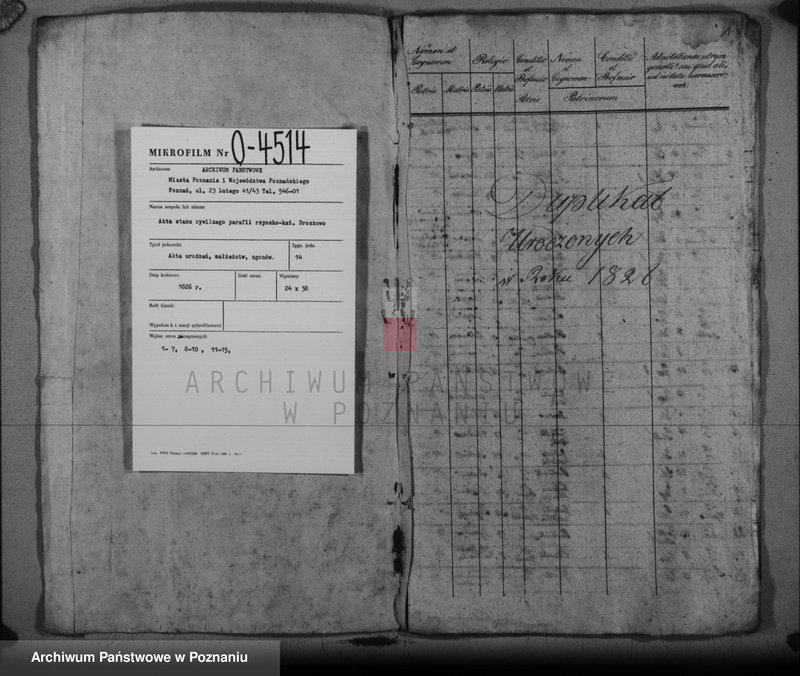 MIKROFILM Nr 0-4514
Archiwum ARCHIWUM PAŃSTWOWE
Miasta Poznania i Województwa Poznańskiego
Poznań, ul. 23 Lutego 41/43 Tel. 546-01
Nazwa zespołu lub zbioru:
Akta stanu cywilnego parafii rzymsko-kat. Droszewo
Tytuł jednostki
Sygn. jedn.
Akta urodzeń, małżeństw, zgonów.
14
Daty końcowe:
Ilość stron:
Wymiary:
1826 r.
24 x 38
Ilość klatek:
Wypełnia k. t. stacji mikrofilmowej
Wykaz stron
1- 7, 8-10, 11-15,
Nomen et Cognomen
Religio
Conditio et Professio Patris
Nomen et Cognomen
Conditio et Professio
Adnotationes, utrum
Patris
Matris
Patris
Matris
Patrinorum
Duplikat
Urodzonych
w Roku 1826
ARCHIWUM PAŃSTWOWE
W POZNANIU
Archiwum Państwowe w Poznaniu